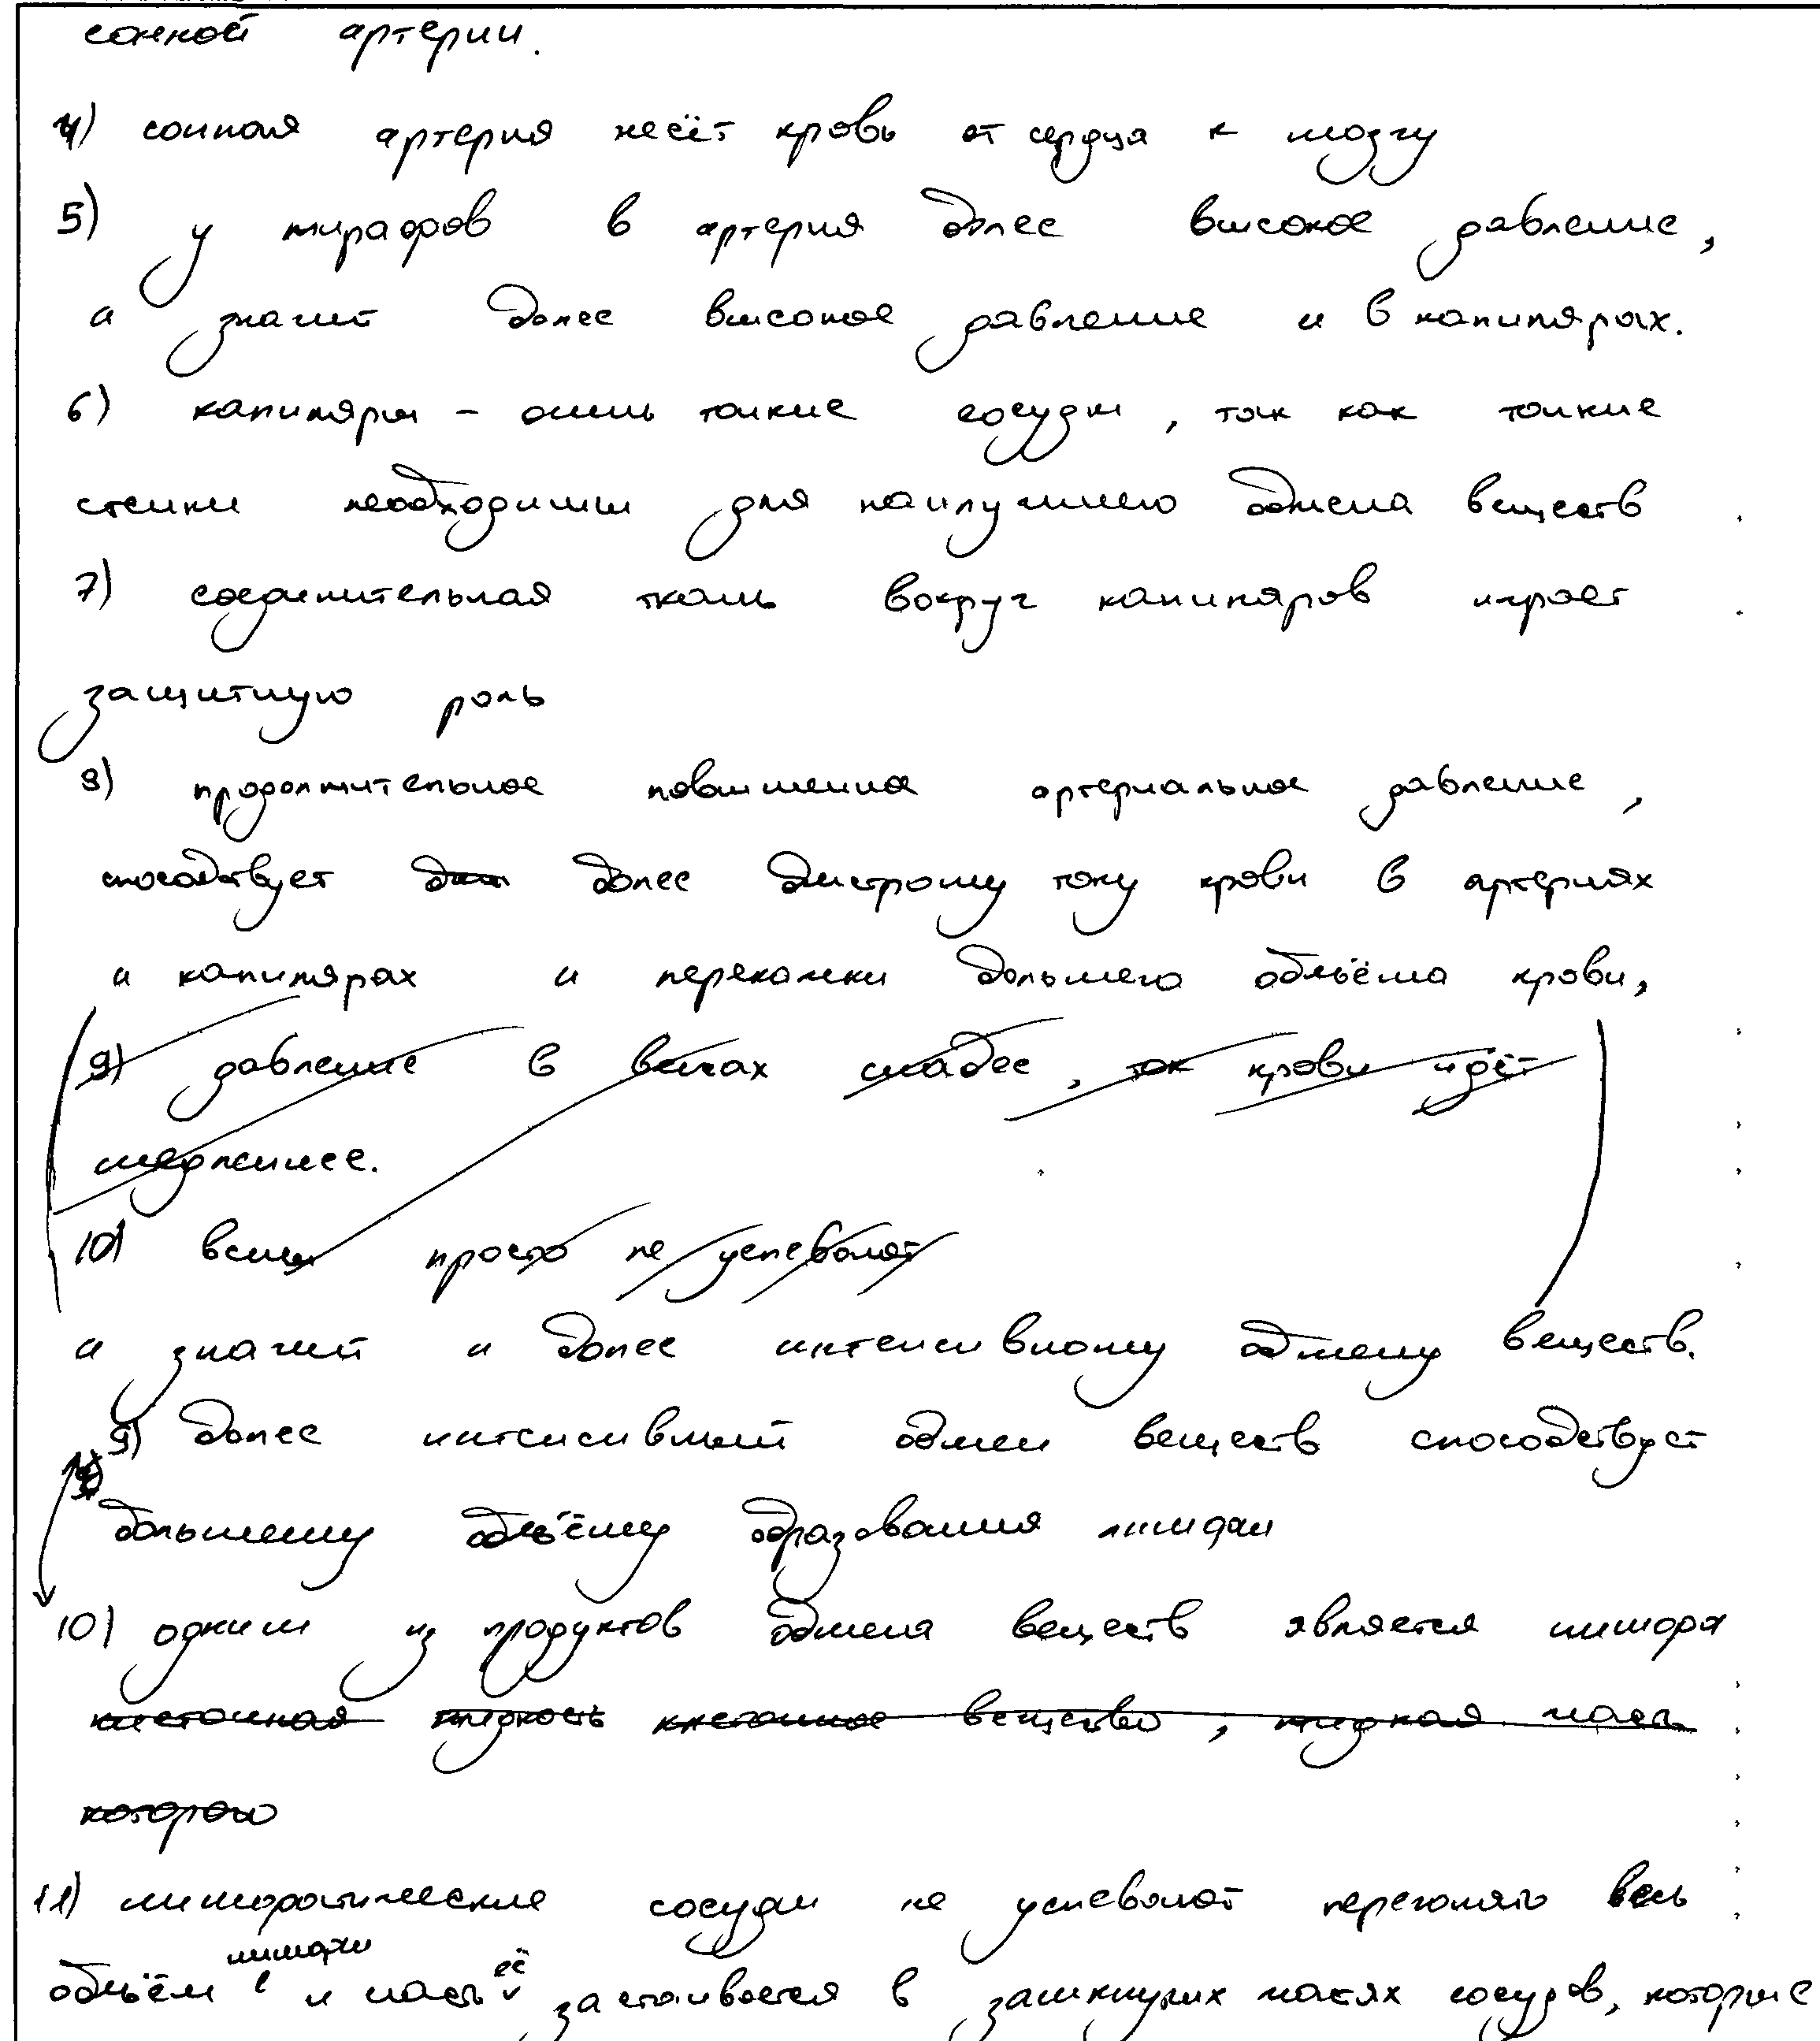 сонной артерии.
4) сонная артерия несёт кровь от сердца к мозгу
5) у жирафов в артерия более высокое давление,
а значит более высокое давление и в капилярах.
6) капиляры - очень тонкие сосуды, так как тонкие
стенки необходимы для наилучшего обмена веществ
7) соединительная ткань вокруг капиляров играет
защитную роль
8) продолжительное повышенное артериальное давление,
способствует более быстрому току крови в артериях
и капилярах и перекачки большего объёма крови,
9) давление в венах слабее, ток крови идёт
медленнее.
10) вены просто не успевают
а значит и более интенсивному обмену веществ.
9) более интенсивный обмен веществ способствует
большему объёму образования лимфы
10) одним из продуктов обмена веществ является лимфа
клеточная жидкость клеточное вещество, жидкая часть
которого
11) лимфатические сосуды не успевают перегонять весь
объём лимфы и часть её застаивается в замкнутых частях сосудов, которые